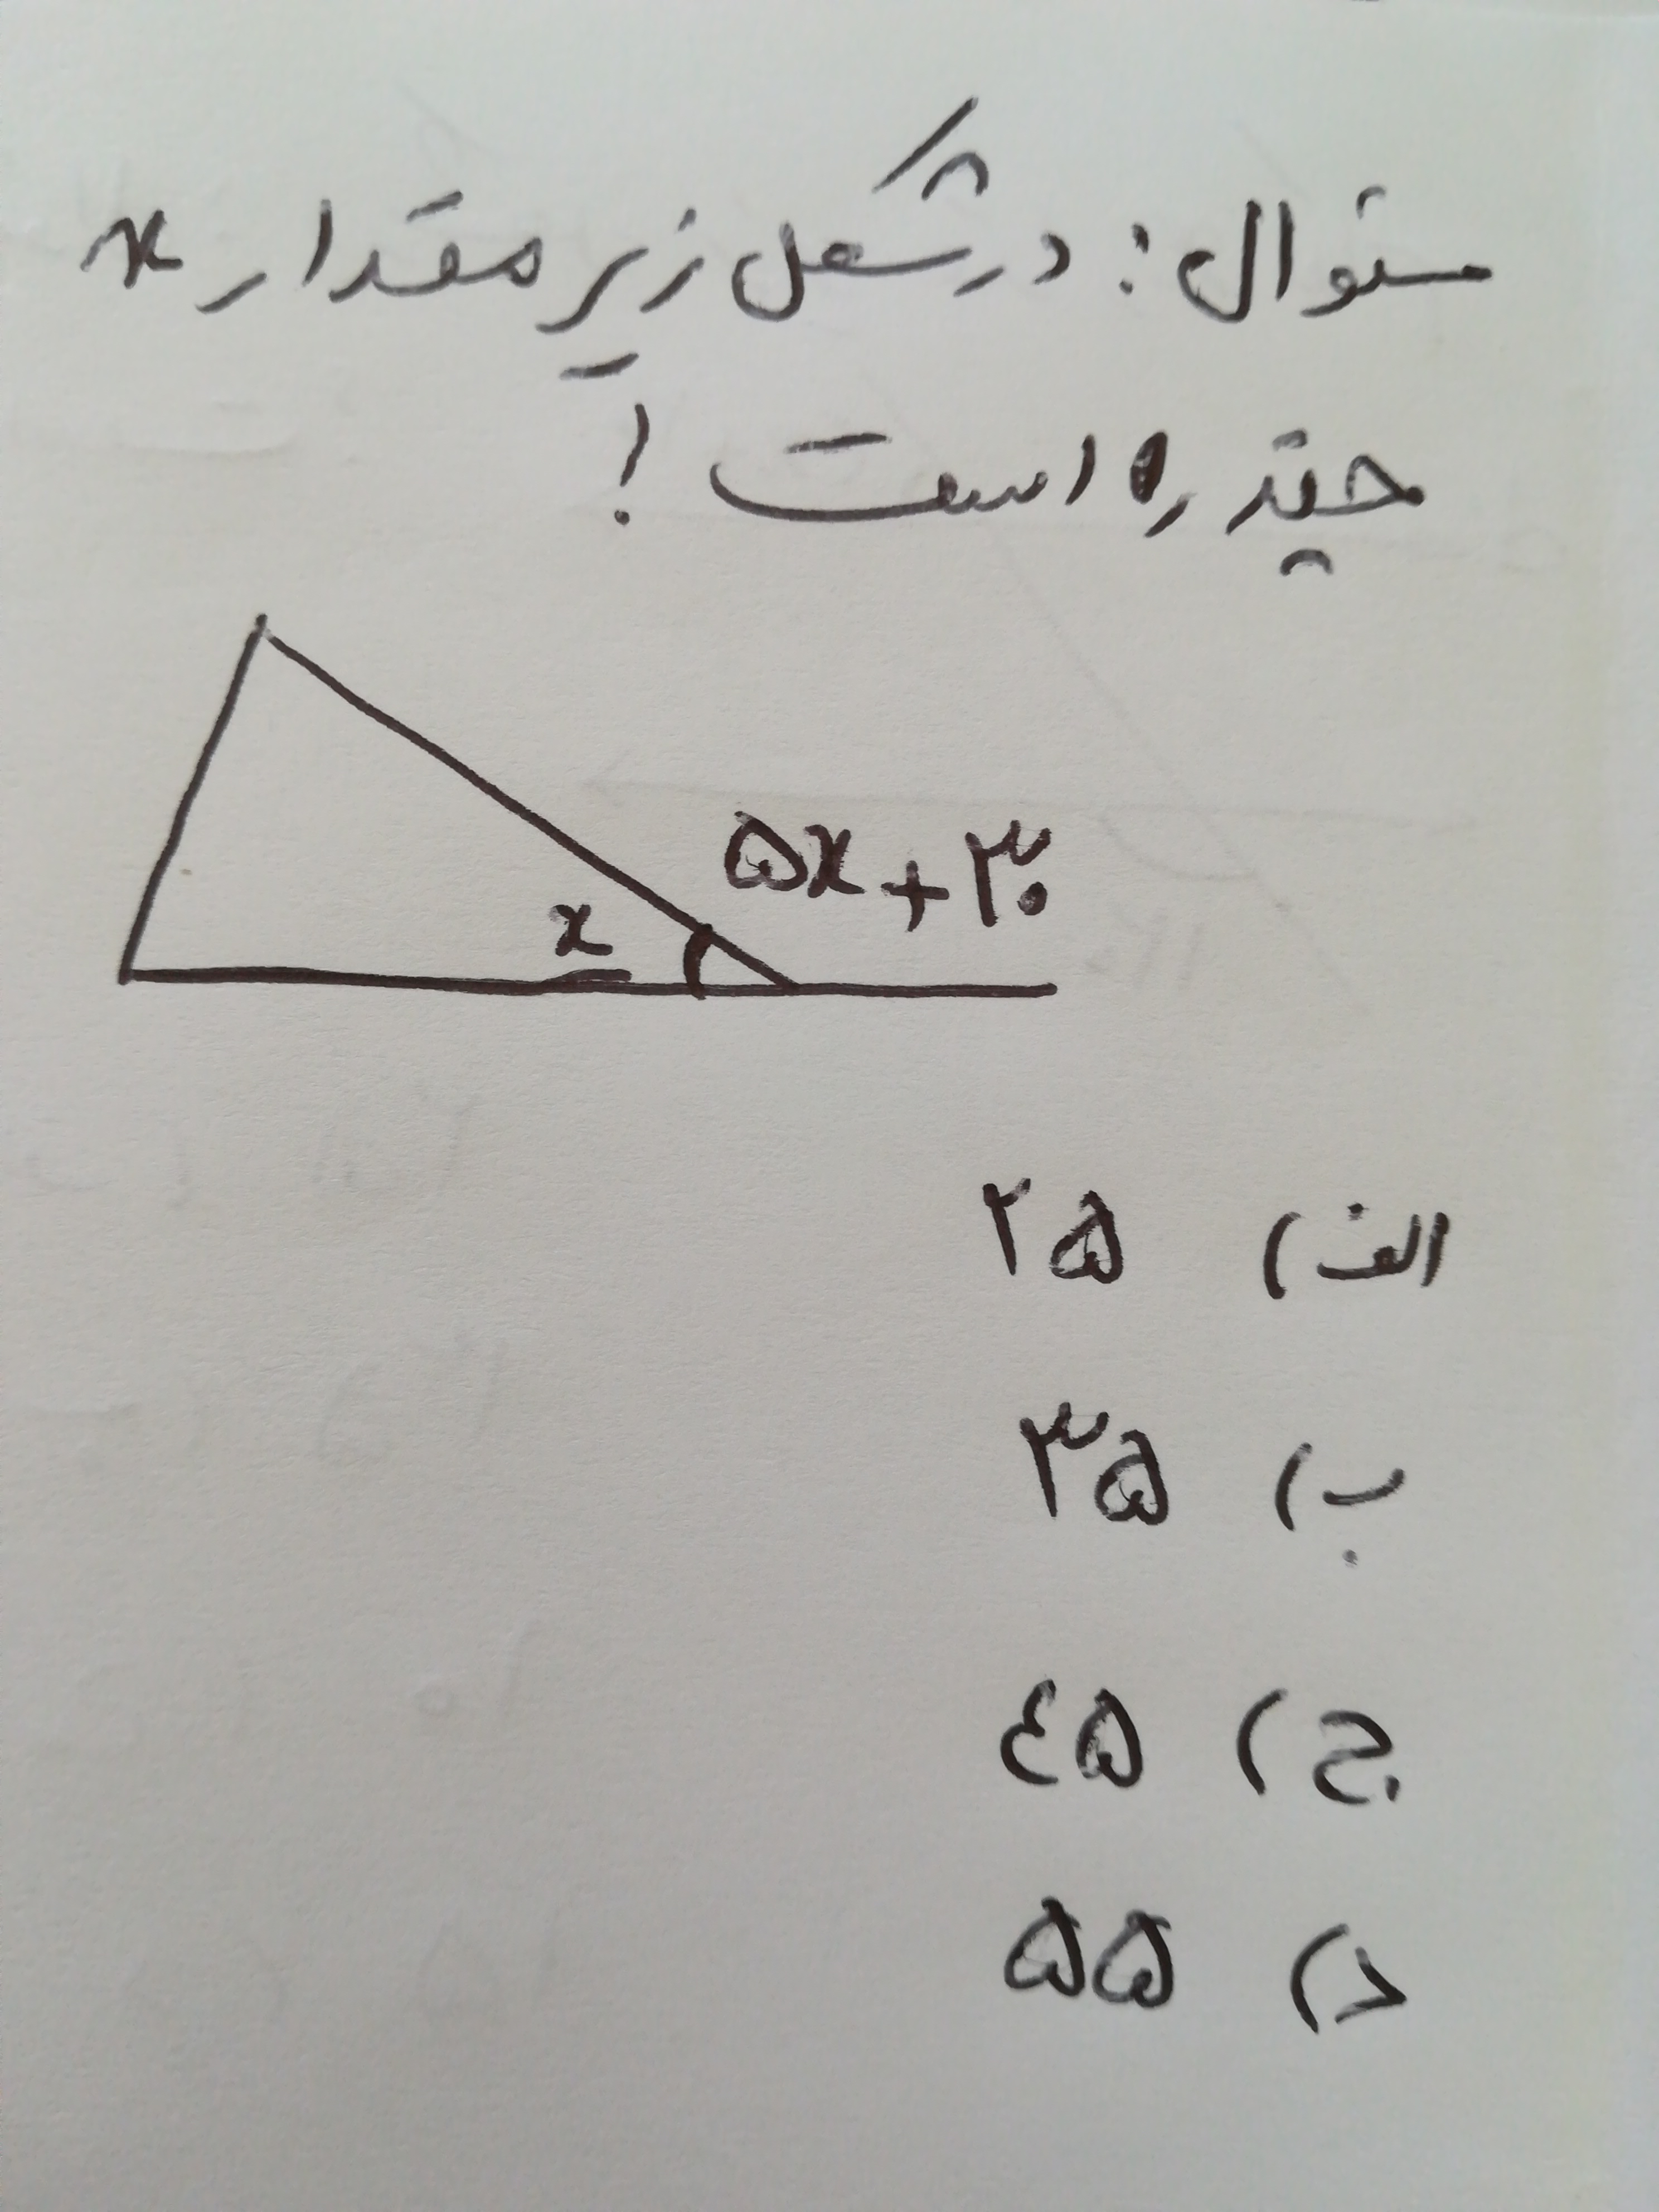 سئوال: در شکل زیر مقدار x
چقدره است!
۵x+۳۰
x
الف) ۲۵
ب) ۳۵
ج) ٤۵
د) ۵۵